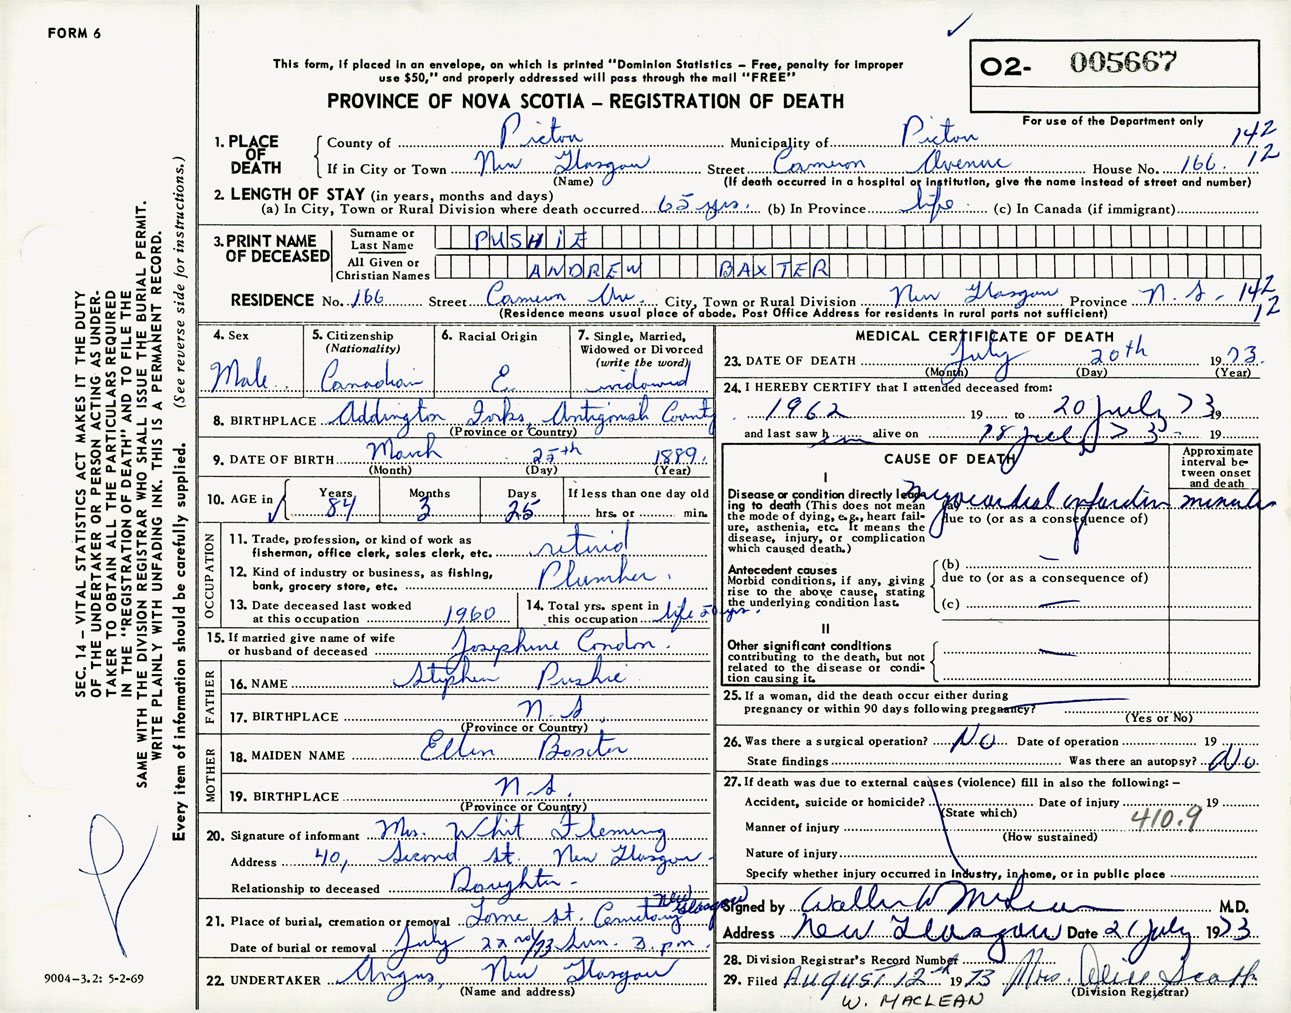 FORM 6
This form, if placed in an envelope, on which is printed "Dominion Statistics – Free, penalty for improper
use $50," and properly addressed will pass through the mail "FREE"
PROVINCE OF NOVA SCOTIA – REGISTRATION OF DEATH
O2- 005667
For use of the Department only
1. PLACE OF DEATH
County of Pictou Municipality of Pictou 142
If in City or Town New Glasgow Street Cameron Avenue House No. 166. 12
(Name) (If death occurred in a hospital or institution, give the name instead of street and number)
2. LENGTH OF STAY (in years, months and days)
(a) In City, Town or Rural Division where death occurred 65 yrs. (b) In Province life (c) In Canada (if immigrant)
3. PRINT NAME OF DECEASED
Surname or Last Name PUSHIE
All Given or Christian Names ANDREW BAXTER
RESIDENCE No. 166 Street Cameron Ave. City, Town or Rural Division New Glasgow Province N.S. - 142
12
(Residence means usual place of abode. Post Office Address for residents in rural parts not sufficient)
4. Sex
Male
5. Citizenship
(Nationality)
Canadian
6. Racial Origin
E.
7. Single, Married,
Widowed or Divorced
(write the word)
widowed
8. BIRTHPLACE Addington Forks, Antigonish County
(Province or Country)
9. DATE OF BIRTH March 25th 1889.
(Month) (Day) (Year)
10. AGE in
Years 84
Months 3
Days 25
If less than one day old
hrs. or min.
OCCUPATION
11. Trade, profession, or kind of work as
fisherman, office clerk, sales clerk, etc. retired
12. Kind of industry or business, as fishing,
bank, grocery store, etc. Plumber.
13. Date deceased last worked
at this occupation 1960
14. Total yrs. spent in
this occupation life 50 yrs.
15. If married give name of wife
or husband of deceased Josephine Condon.
FATHER
16. NAME Stephen Pushie
17. BIRTHPLACE N.S.
(Province or Country)
MOTHER
18. MAIDEN NAME Ellen
19. BIRTHPLACE N.S.
(Province or Country)
20. Signature of informant Mrs. Whit Fleming
Address 40, Second St. New Glasgow -
Relationship to deceased Daughter -
21. Place of burial, cremation or removal Lorne St. Cemetery New Glasgow
Date of burial or removal July 22nd/73 Sun. 3. pm.
22. UNDERTAKER Angus, New Glasgow
(Name and address)
MEDICAL CERTIFICATE OF DEATH
23. DATE OF DEATH July 20th 1973.
(Month) (Day) (Year)
24. I HEREBY CERTIFY that I attended deceased from:
1962 19 to 20 July 73 19
and last saw h im alive on 18 July 73 - 19
CAUSE OF DEATH
Approximate
interval be-
tween onset
and death
I
Disease or condition directly lead-
ing to death (This does not mean
the mode of dying, e.g., heart fail-
ure, asthenia, etc. It means the
disease, injury, or complication
which caused death.)
(a) myocardial infarction minutes
due to (or as a consequence of)
Antecedent causes
Morbid conditions, if any, giving
rise to the above cause, stating
the underlying condition last.
(b) —
due to (or as a consequence of)
(c) —
II
Other significant conditions
contributing to the death, but not
related to the disease or condi-
tion causing it.
—
25. If a woman, did the death occur either during
pregnancy or within 90 days following pregnancy?
(Yes or No)
26. Was there a surgical operation? No Date of operation 19
State findings Was there an autopsy? No.
27. If death was due to external causes (violence) fill in also the following: –
Accident, suicide or homicide? Date of injury 19
(State which)
Manner of injury 410.9
(How sustained)
Nature of injury
Specify whether injury occurred in industry, in home, or in public place
Signed by Walter W McLean M.D.
Address New Glasgow Date 21 July 1973
28. Division Registrar's Record Number
29. Filed AUGUST 12th 1973 Mrs.
(Division Registrar)
W. MACLEAN
SEC. 14 – VITAL STATISTICS ACT MAKES IT THE DUTY
OF THE UNDERTAKER OR PERSON ACTING AS UNDER-
TAKER TO OBTAIN ALL THE PARTICULARS REQUIRED
IN THE "REGISTRATION OF DEATH" AND TO FILE THE
SAME WITH THE DIVISION REGISTRAR WHO SHALL ISSUE THE BURIAL PERMIT.
WRITE PLAINLY WITH UNFADING INK. THIS IS A PERMANENT RECORD.
Every item of information should be carefully supplied. (See reverse side for instructions.)
9004–3.2: 5-2-69